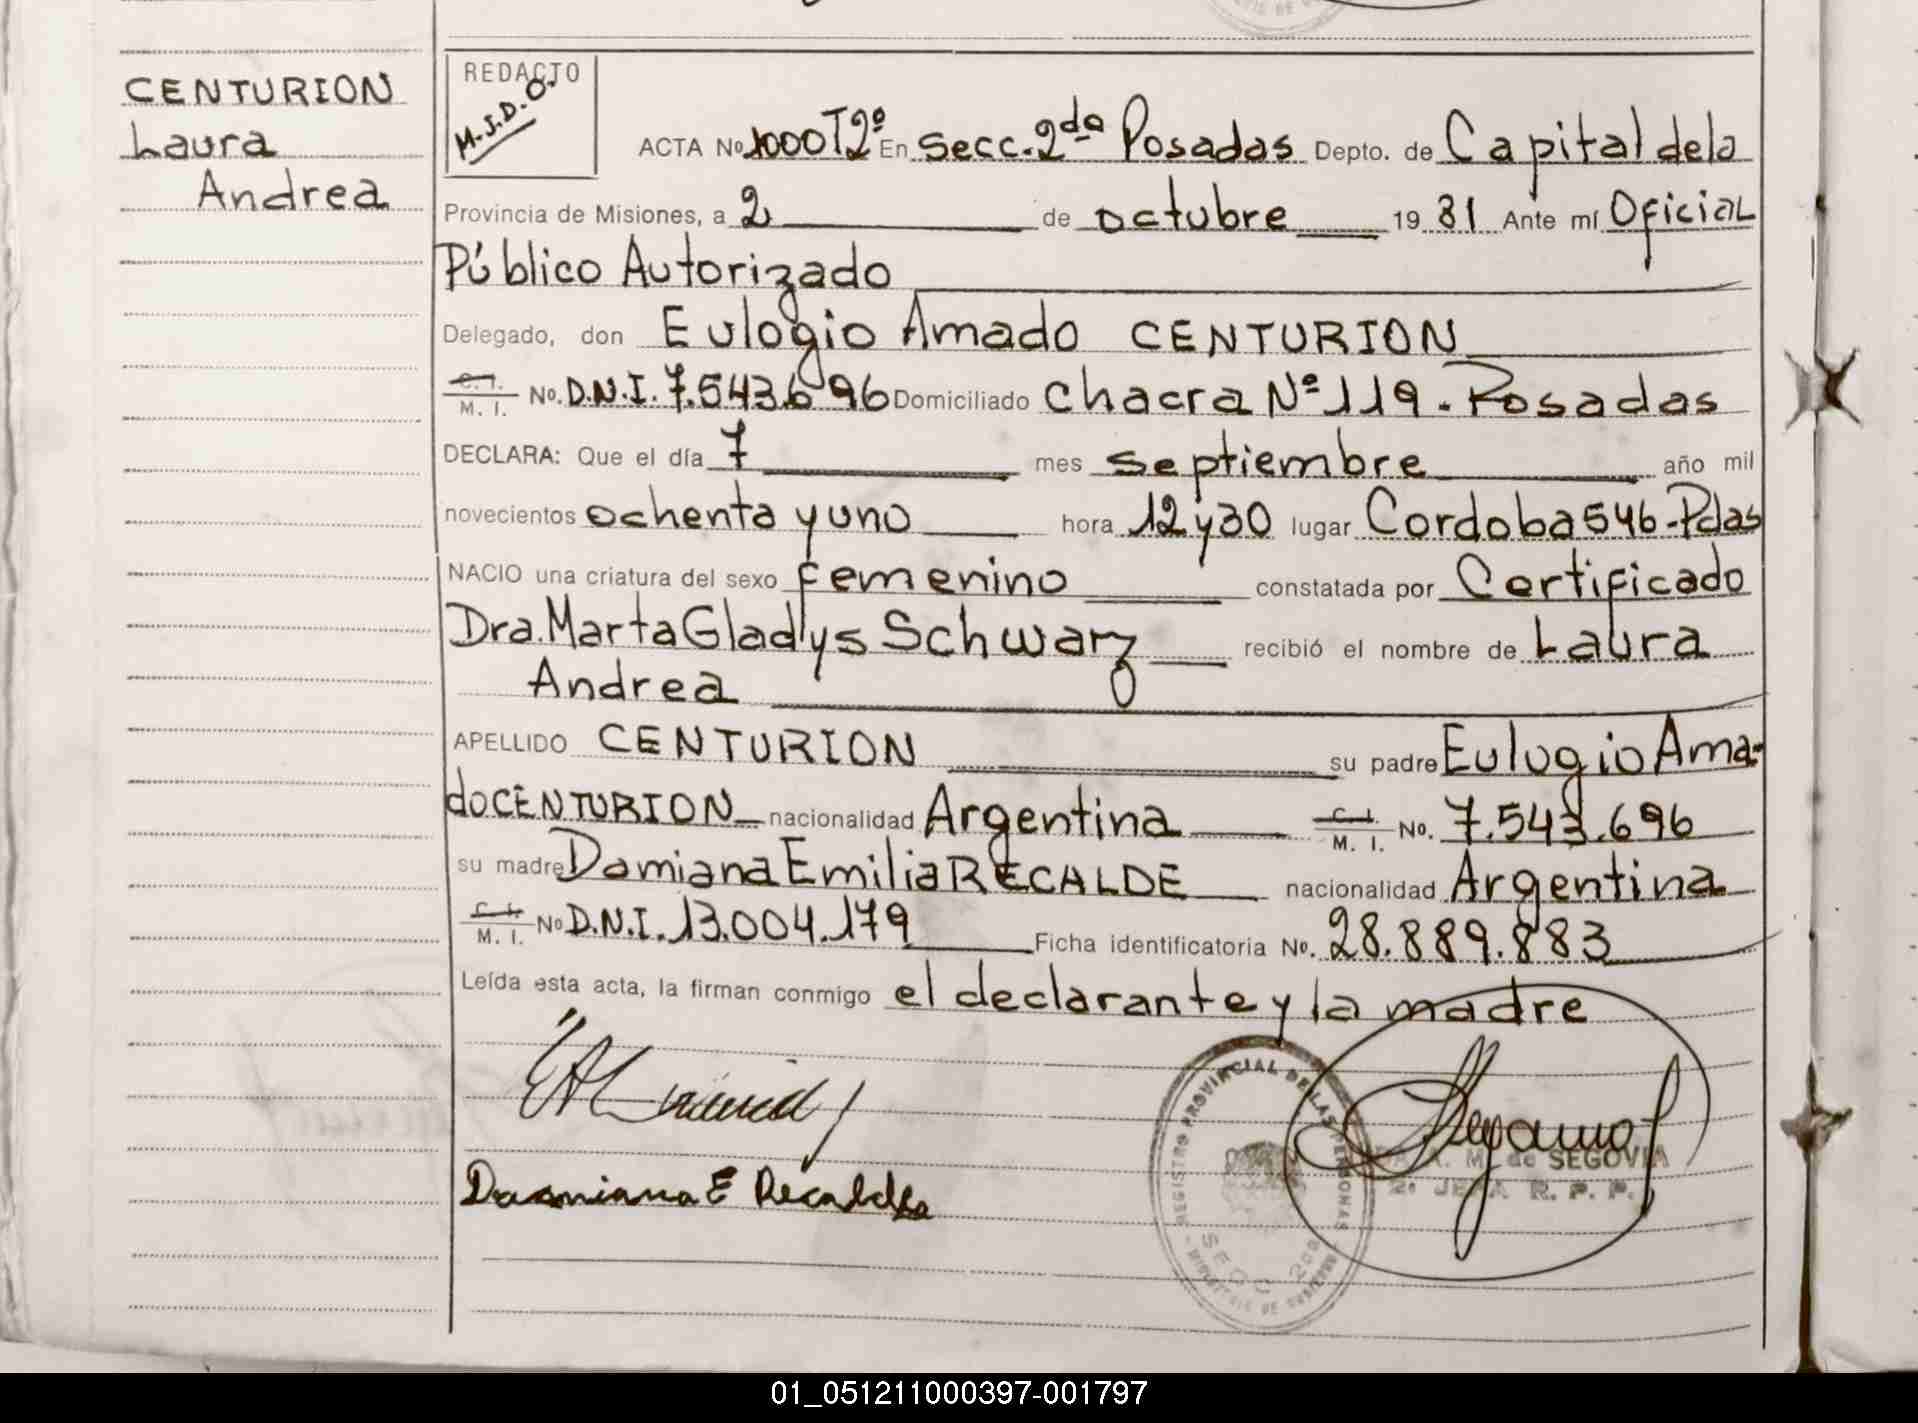 CENTURION
Laura
Andrea
REDACTO
M.J.D.O.
ACTA No 1000 T2º En Secc. 2da Posadas Depto. de Capital de la
Provincia de Misiones, a 2 de octubre 1981 Ante mí Oficial
Público Autorizado
Delegado, don Eulogio Amado CENTURION
C. I. / M. I. No. D.N.I. 7.543.696 Domiciliado Chacra Nº 119. Posadas
DECLARA: Que el día 7 mes septiembre año mil
novecientos ochenta y uno hora 12 y 30 lugar Cordoba 546-Pdas
NACIO una criatura del sexo femenino constatada por Certificado
Dra. Marta Gladys Schwarz recibió el nombre de Laura
Andrea
APELLIDO CENTURION su padre Eulogio Ama-
do CENTURION nacionalidad Argentina C. I. / M. I. No. 7.543.696
su madre Damiana Emilia RECALDE nacionalidad Argentina
C. I. / M. I. No D.N.I. 13.004.179 Ficha identificatoria No. 28.889.883
Leída esta acta, la firman conmigo el declarante y la madre
Damiana E Recalde
REGISTRO PROVINCIAL DE LAS PERSONAS
SECC 2da
M. de SEGOVIA
2º JEFA R. P. P.
01_051211000397-001797